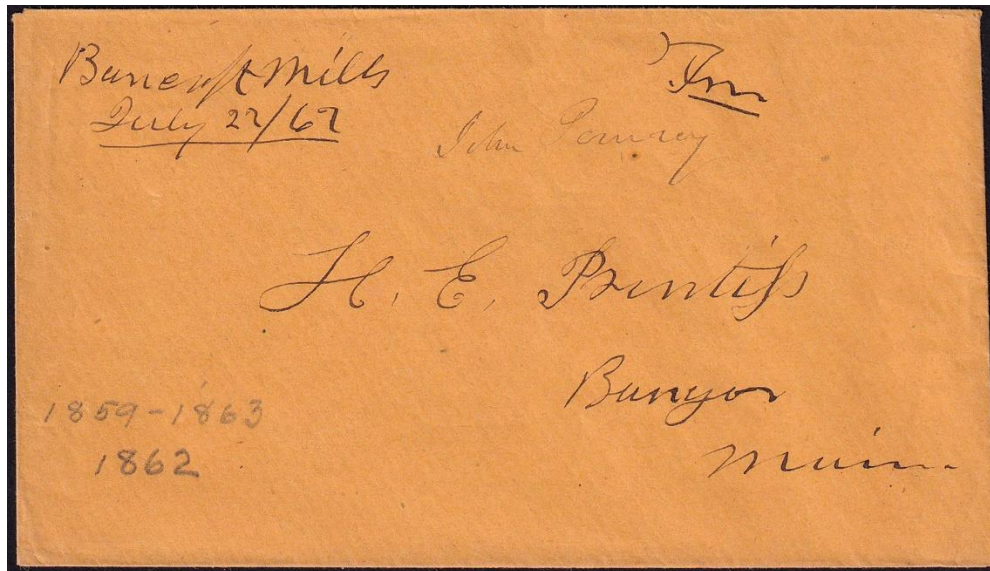 Bancroft Mills
July 22/62
Free
John Pomroy
H. E. Prentiss
Bangor
Maine
1859-1863
1862